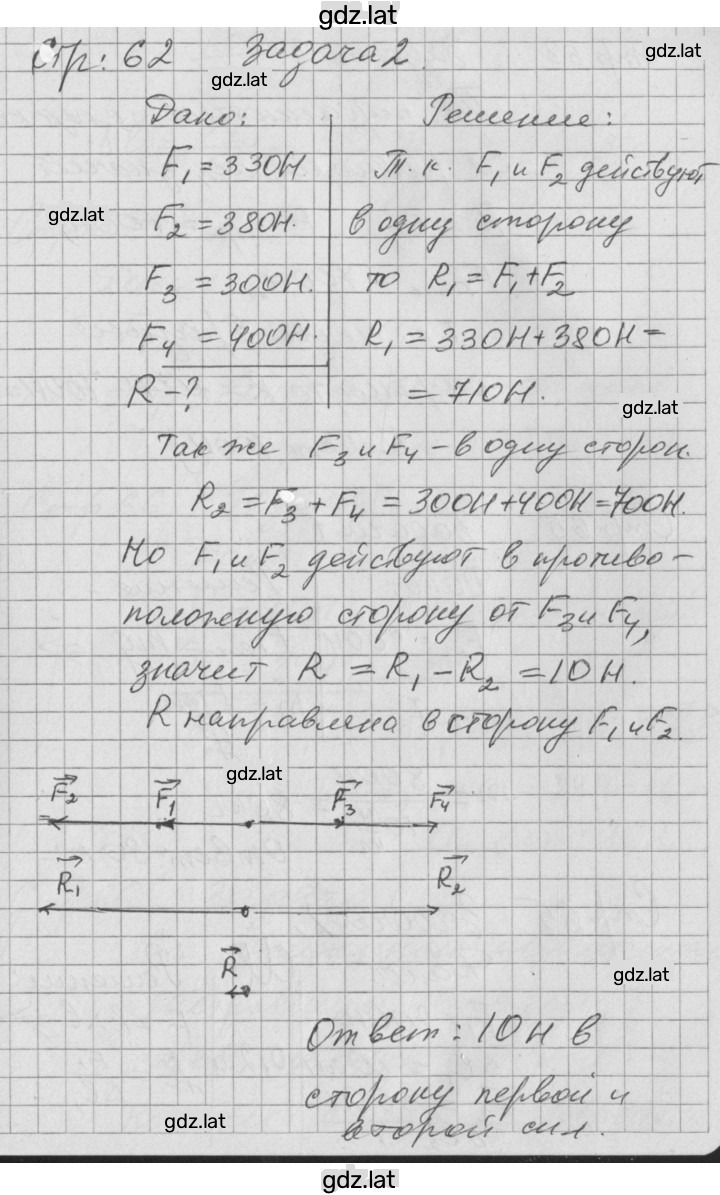 gdz.lat
Стр: 62 Задача 2.
gdz.lat
gdz.lat
Дано:
Решение:
F₁ = 330Н
Т.к. F₁ и F₂ действуют
gdz.lat
F₂ = 380Н.
в одну сторону
F₃ = 300Н.
то R₁ = F₁ + F₂
F₄ = 400Н.
R₁ = 330Н + 380Н =
R - ?
= 710Н.
gdz.lat
Так же F₃ и F₄ - в одну сторон.
R₂ = F₃ + F₄ = 300Н + 400Н = 700Н.
Но F₁ и F₂ действуют в противо-
положную сторону от F₃ и F₄,
значит R = R₁ - R₂ = 10Н.
R направлена в сторону F₁ и F₂.
gdz.lat
F₂ F₁ F₃ F₄
R₁ R₂
R
gdz.lat
Ответ: 10Н в
сторону первой и
второй сил.
gdz.lat
gdz.lat